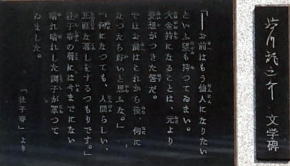 芥川龍之介 文学碑
「―お前はもう仙人になりたい
といふ望も持つてゐまい。
大金持になることは、元より
愛想がつきた筈だ。
ではお前はこれから後、何に
なつたら好いと思ふな。」
「何になつても、人間らしい、
正直な暮しをするつもりです。」
杜子春の声には今までにない
晴れ晴れした調子が罩つて
ゐました。
「杜子春」より